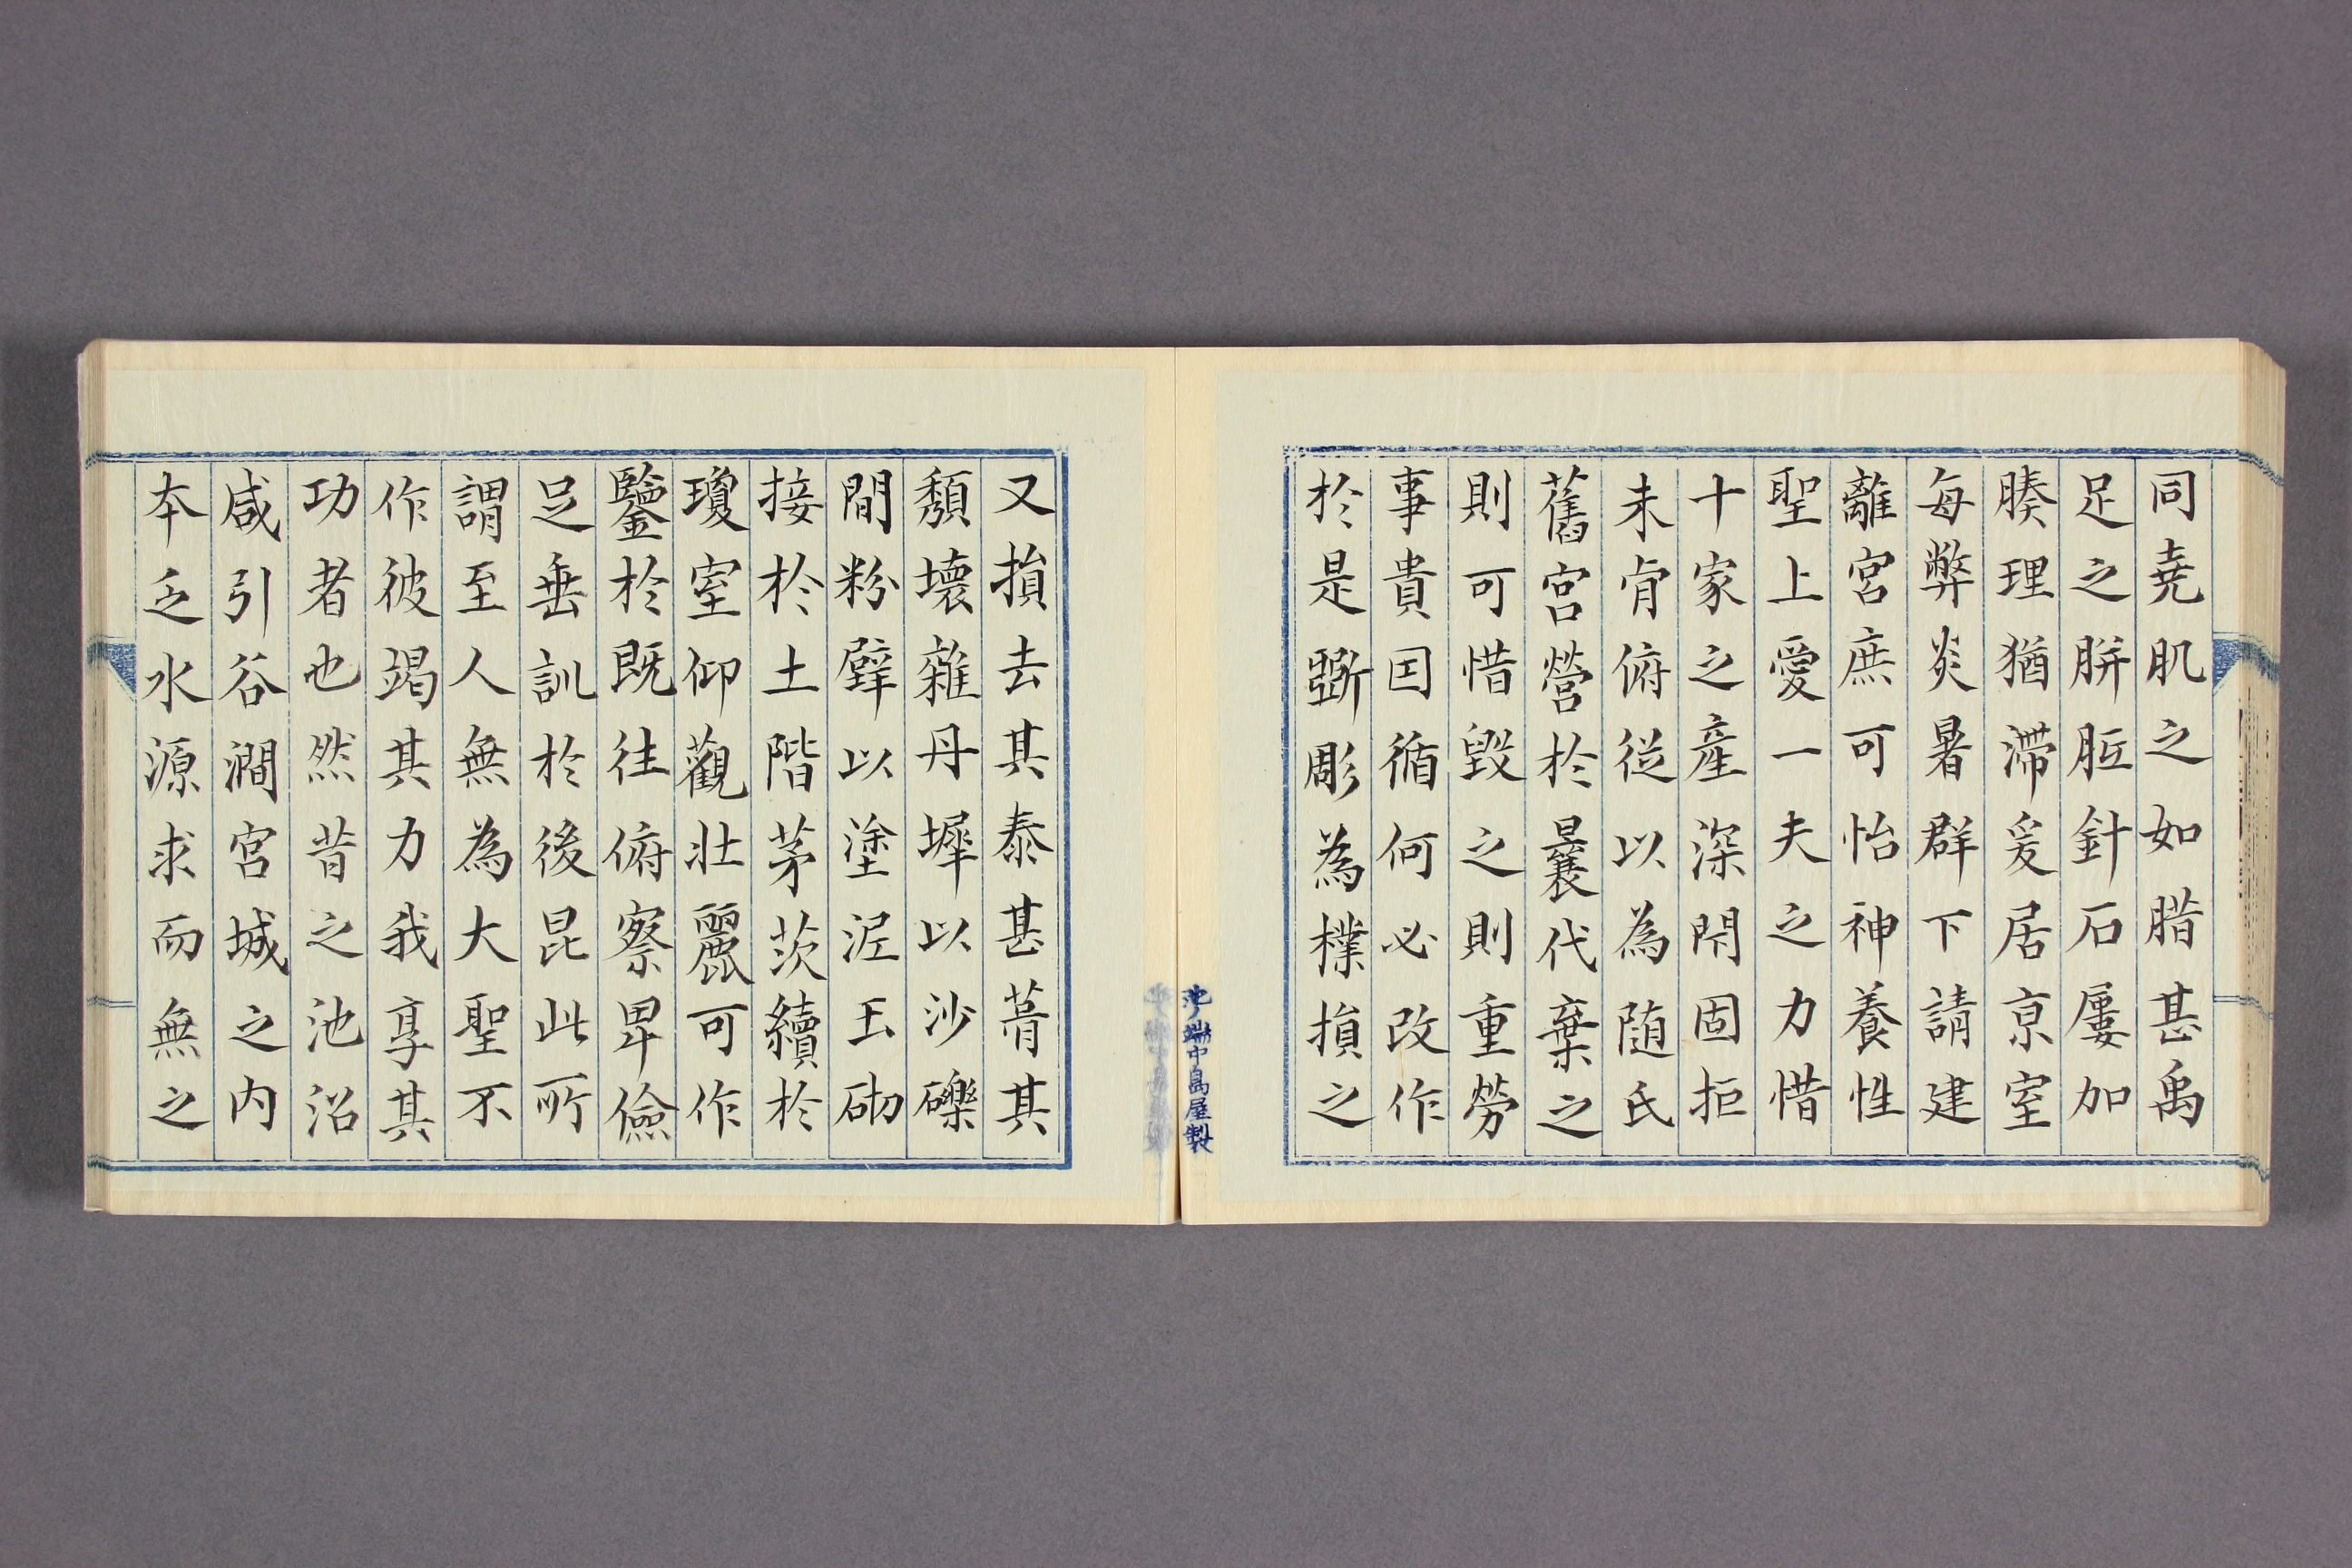 同堯肌之如腊甚禹
足之胼胝針石屢加
腠理猶滯爰居京室
每弊炎暑群下請建
離宮庶可怡神養性
聖上愛一夫之力惜
十家之產深閇固拒
未肯俯従以為随氏
舊宮營於曩代棄之
則可惜毀之則重勞
事貴因循何必改作
於是斵彫為樸損之
又損去其泰甚葺其
頹壞雜丹墀以沙礫
間粉壁以塗泥玉砌
接於土階茅茨續於
瓊室仰觀壯麗可作
鑒於既往俯察卑儉
足垂訓於後昆此所
謂至人無為大聖不
作彼竭其力我享其
功者也然昔之池沼
咸引谷澗宮城之內
本乏水源求而無之
池ノ端中島屋製